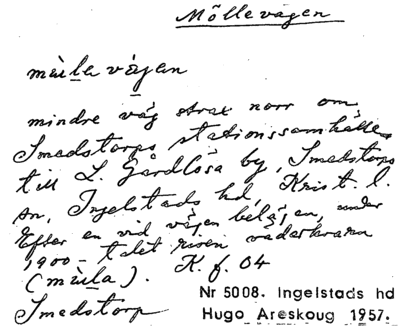 Möllevägen
mùlavägan
mindre väg strax norr om
Smedstorps stationssamhälle
till L. Gårdlösa by, Smedstorps
sn, Ingelstads hd, Krist. l.
Efter en vid vägen belägen, under
1900-talet riven väderkvarn
(mùla). K. f. 04
Smedstorp
Nr 5008. Ingelstads hd
Hugo Areskoug 1957.